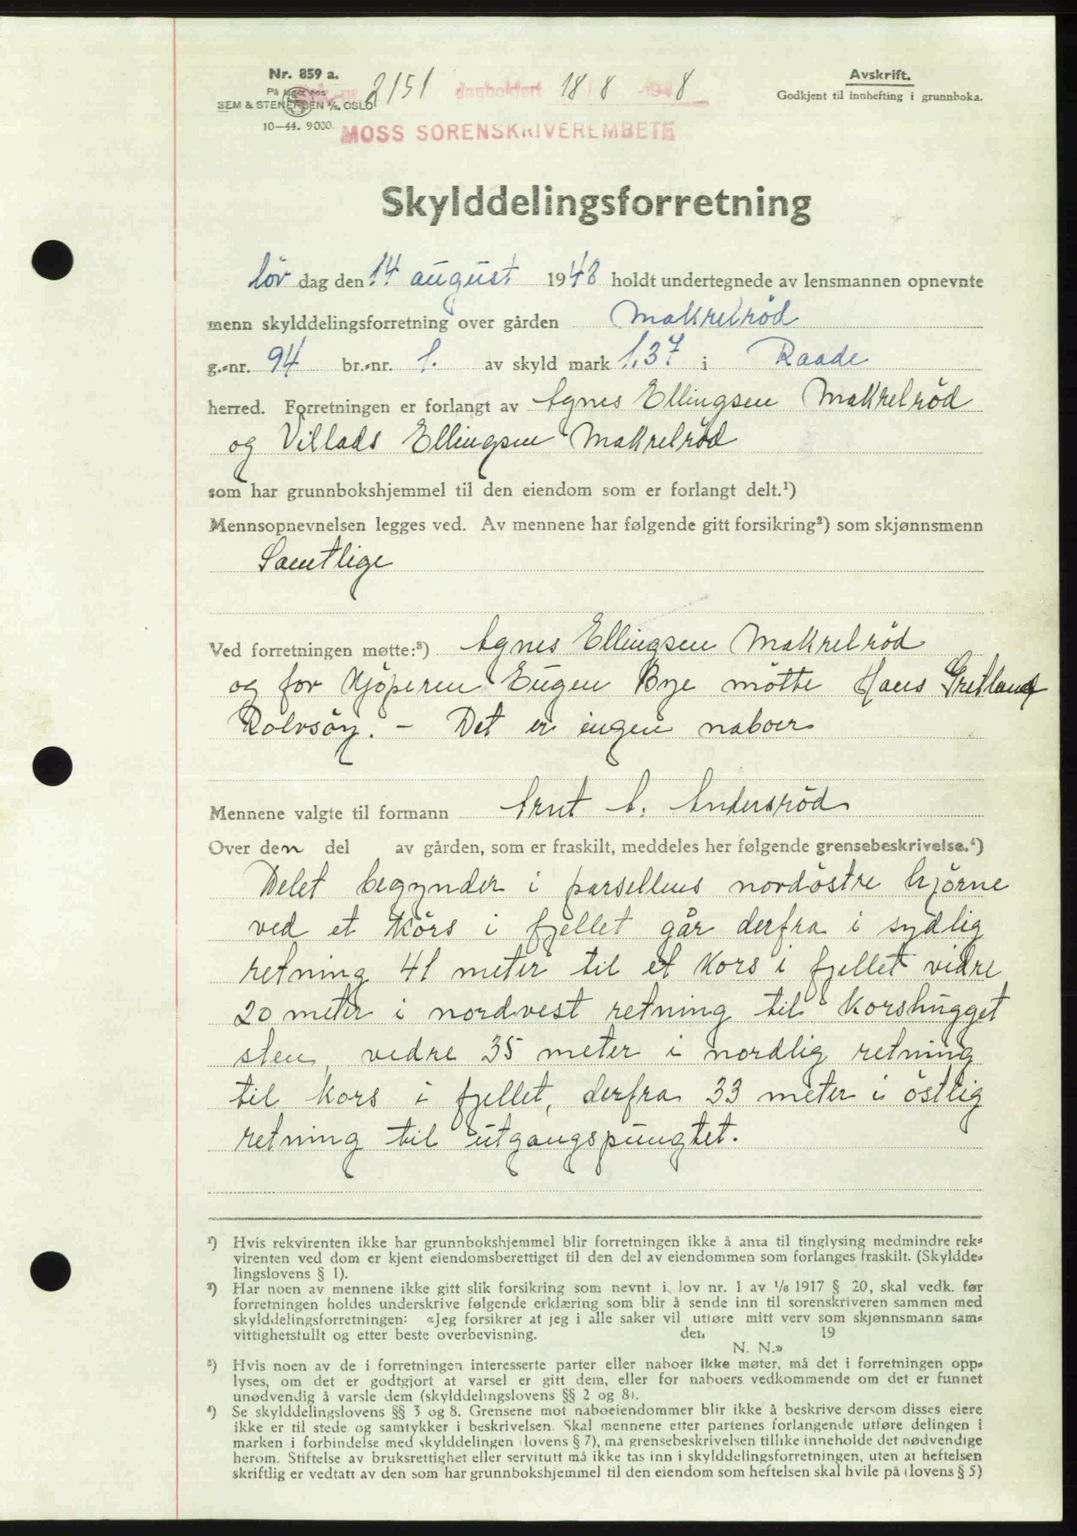 Nr. 859 a.
SEM & STENERSEN A/S, OSLO
10—44. 9000.
2151 dagbokført 18/8 -1948
MOSS SORENSKRIVEREMBETE
Avskrift.
Godkjent til innhefting i grunnboka.
Skylddelingsforretning
lør dag den 14 august 1948 holdt undertegnede av lensmannen opnevnte
menn skylddelingsforretning over gården Makrelrød
g.-nr. 94 br.-nr. 1. av skyld mark 1,37 i Raade
herred. Forretningen er forlangt av Agnes Ellingsen Makrelrød
og Villads Ellingsen Makrelrød
som har grunnbokshjemmel til den eiendom som er forlangt delt.¹)
Mennsopnevnelsen legges ved. Av mennene har følgende gitt forsikring²) som skjønnsmenn
Samtlige
Ved forretningen møtte:³) Agnes Ellingsen Makrelrød
og for Kjøperen Eugen Bye møtte Hans
Rolvsøy. – Det er ingen naboer
Mennene valgte til formann A. Andersrød
Over den del av gården, som er fraskilt, meddeles her følgende grensebeskrivelse.⁴)
Delet begynder i parsellens nordøstre hjørne
ved et Kørs i fjellet går derfra i sydlig
retning 41 meter til et Kors i fjellet vidre
20 meter i nordvest retning til Korshugget
sten, vidre 35 meter i nordlig retning
til Kors i fjellet, derfra 33 meter i østlig
retning til utgangspungtet.
¹) Hvis rekvirenten ikke har grunnbokshjemmel blir forretningen ikke å anta til tinglysing medmindre rek-
virenten ved dom er kjent eiendomsberettiget til den del av eiendommen som forlanges fraskilt. (Skyldde-
lingslovens § 1).
²) Har noen av mennene ikke gitt slik forsikring som nevnt i lov nr. 1 av 1/6 1917 § 20, skal vedk. før
forretningen holdes underskrive følgende erklæring som blir å sende inn til sorenskriveren sammen med
skylddelingsforretningen: «Jeg forsikrer at jeg i alle saker vil utføre mitt verv som skjønnsmann sam-
vittighetsfullt og etter beste overbevisning. den 19
N. N.»
³) Hvis noen av de i forretningen interesserte parter eller naboer ikke møter, må det i forretningen opp-
lyses, om det er godtgjort at varsel er gitt dem, eller for naboers vedkommende om det er funnet
unødvendig å varsle dem (skylddelingslovens §§ 2 og 8).
⁴) Se skylddelingslovens §§ 3 og 8. Grensene mot naboeiendommer blir ikke å beskrive dersom disses eiere
ikke er til stede og samtykker i beskrivelsen. Skal mennene etter partenes forlangende utføre delingen i
marken i forbindelse med skylddelingen (lovens § 7), må grensebeskrivelsen tillike inneholde det nødvendige
herom. Stiftelse av bruksrettighet eller servitutt må ikke tas inn i skylddelingsforretningen, uten at heftelsen
skriftlig er vedtatt av den som har grunnbokshjemmel til den eiendom som heftelsen skal hvile på (lovens § 5)